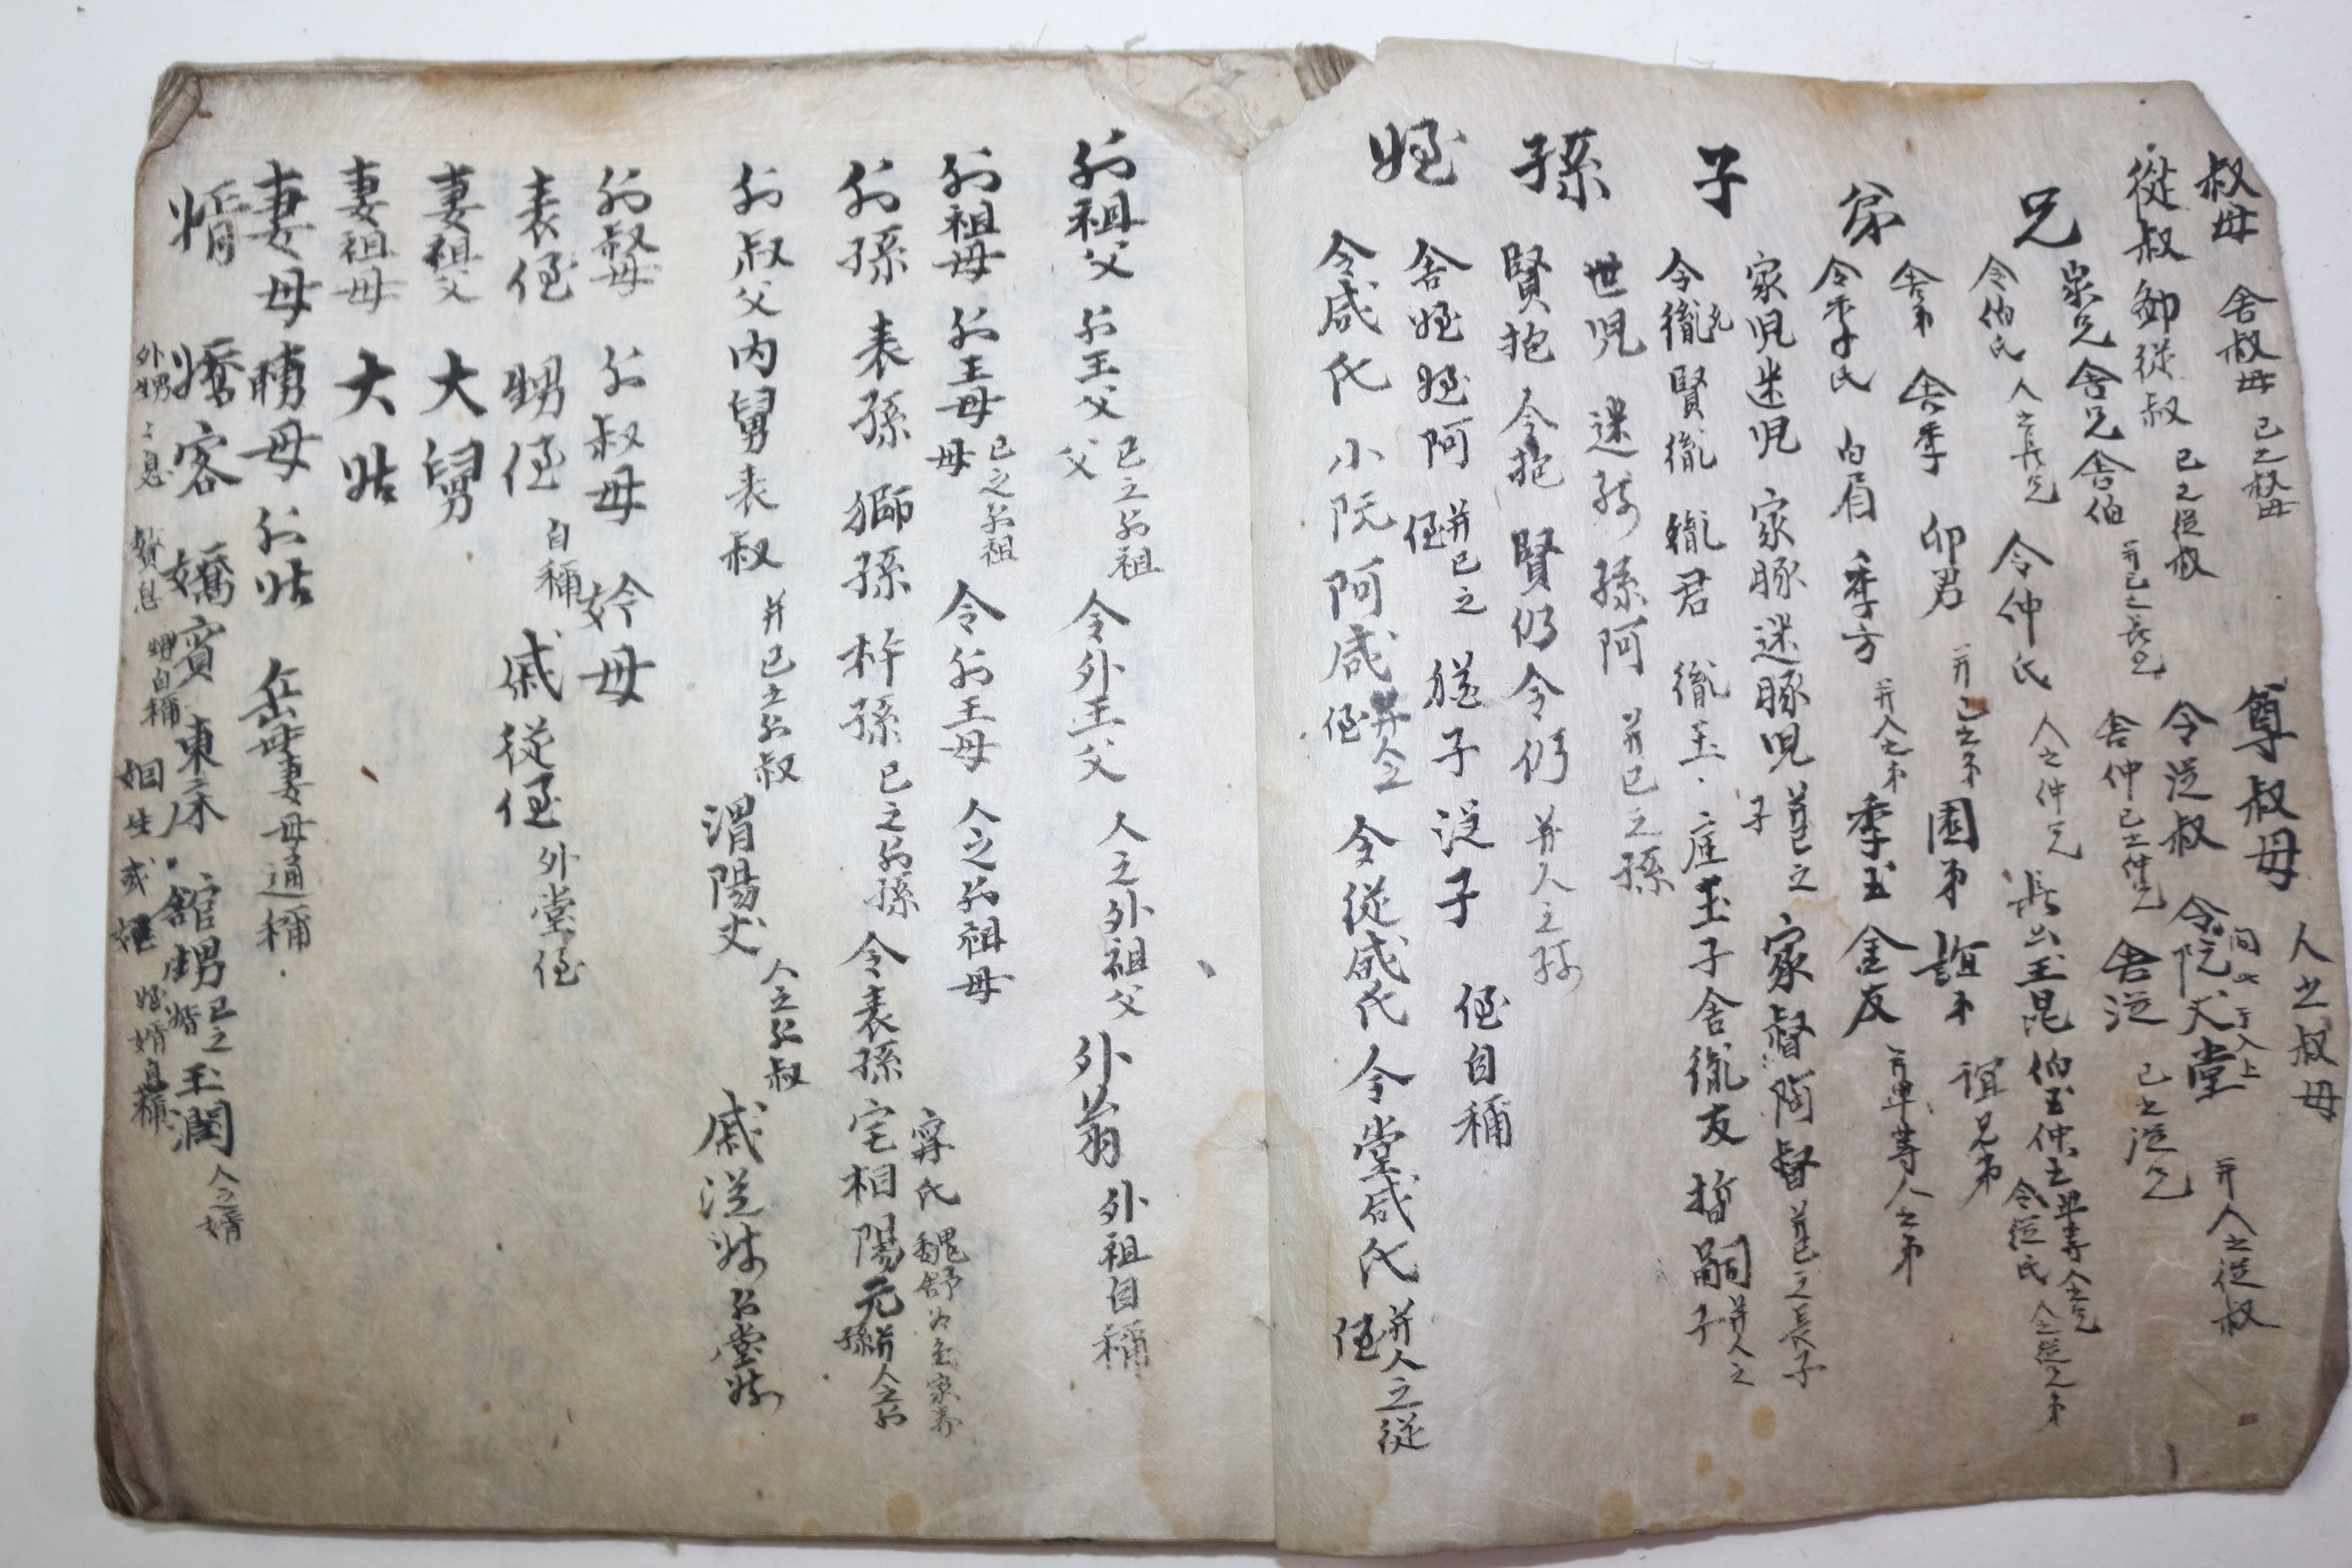 叔母 舍叔母 己之叔母 尊叔母 人之叔母
從叔 鄙從叔 己之從叔 令從叔 令阮丈 堂 并人之從叔
兄 家兄 舍兄 舍伯 并己之長兄 舍仲 己之仲兄 舍從 己之從兄
令伯氏 人之長兄 令仲氏 人之仲兄 長公 玉昆 伯玉 仲玉 令從氏
弟 舍弟 舍季 卯君 并己之弟 園弟 誼弟 誼兄弟
令季氏 白眉 季方 并人之弟 季玉 金友
子 家児 迷児 家豚 迷豚児 并己之子 家督 阿督 并己之長子
令胤 賢胤 胤君 胤玉 庭玉 子舍 胤友 哲嗣 并人之子
孫 世児 迷孫 孫阿 并己之孫
賢抱 令抱 賢仍 令仍 并人之孫
姪 舍姪 姪阿 并己之侄 猶子 從子 侄自稱
令咸氏 小阮 阿咸 并人之侄 令從咸氏 令堂咸氏 并人之從侄
外祖父 外王父 己之外祖父 令外王父 人之外祖父 外翁 外祖自稱
外祖母 外王母 己之外祖母 令外王母 人之外祖母
外孫 表孫 獅孫 杵孫 己之外孫 令表孫 宅相 陽元 并人之外孫
外叔父 內舅 表叔 并己之外叔 渭陽丈 人之外叔 戚從
外叔母 外叔母 妗母
表侄 甥侄 自稱 戚從侄 外堂侄
妻祖父 大舅
妻祖母 大姑
妻母 聘母 外姑 岳母 妻母通稱
婿 嬌客 嬌賓 東床 館甥 己之婿 玉潤 人之婿
外甥 贅息 甥自稱 姻生